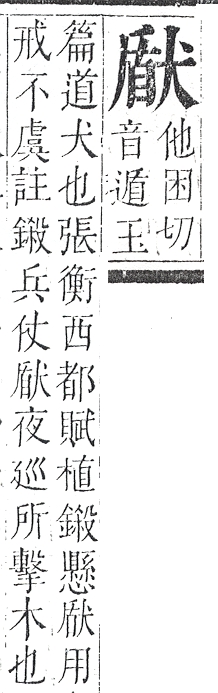 他困切
音遁玉
篇道犬也張衡西都賦植鍛懸用
戒不虞註鍛兵仗夜廵所擊木也